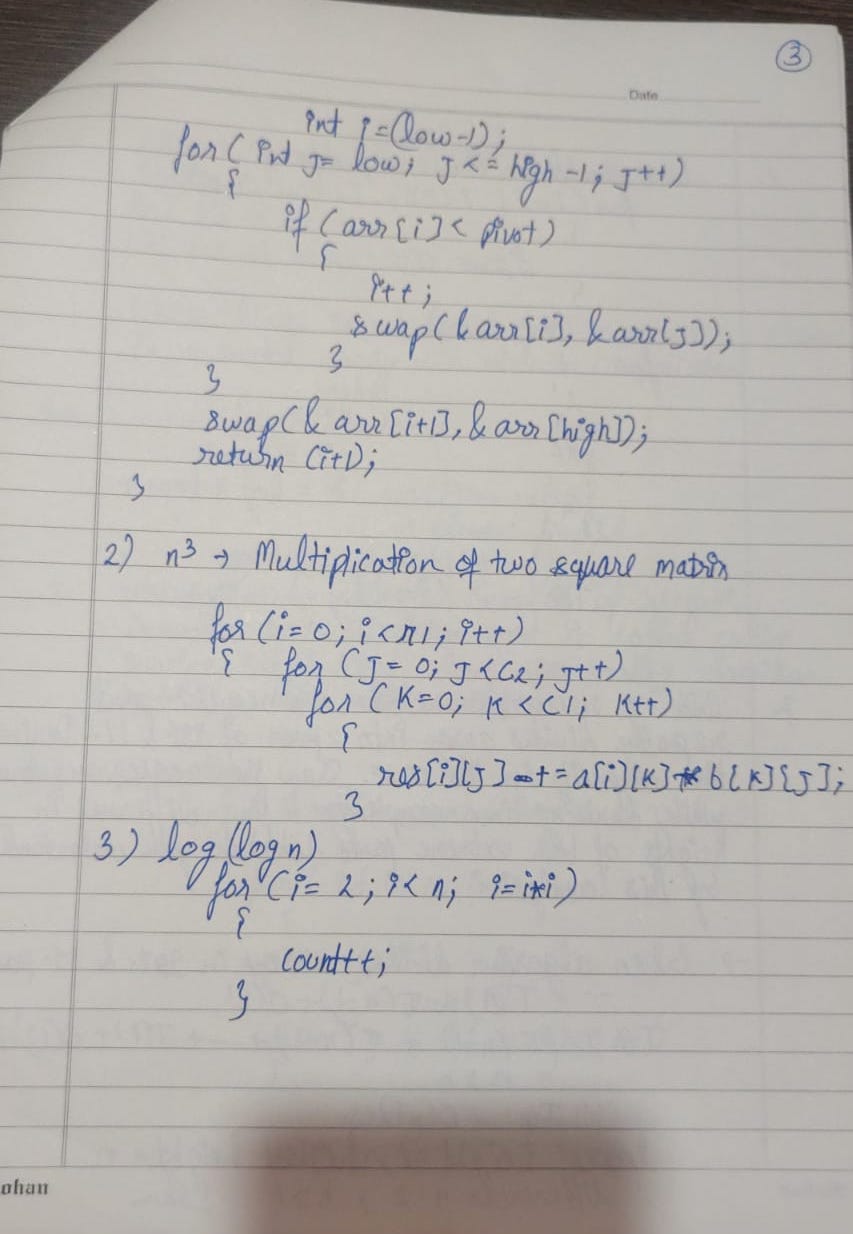 3
Date
int i=(low-1);
for( int J= low; J<= high -1; J++)
{
if (arr[i]< pivot)
{
i++;
swap(&arr[i], &arr[J]);
}
}
swap(& arr[i+1], & arr[high]);
return (i+1);
}
2) n³ → Multiplication of two square matrix
for (i= 0; i<r1; i++)
{ for (J= 0; J<C2; J++)
for ( K=0; K <C1; K++)
{
res[i][J] += a[i][K]*b[K][J];
}
3) log(log n)
for (i= 2; i< n; i=i*i)
{
count++;
}
ohan